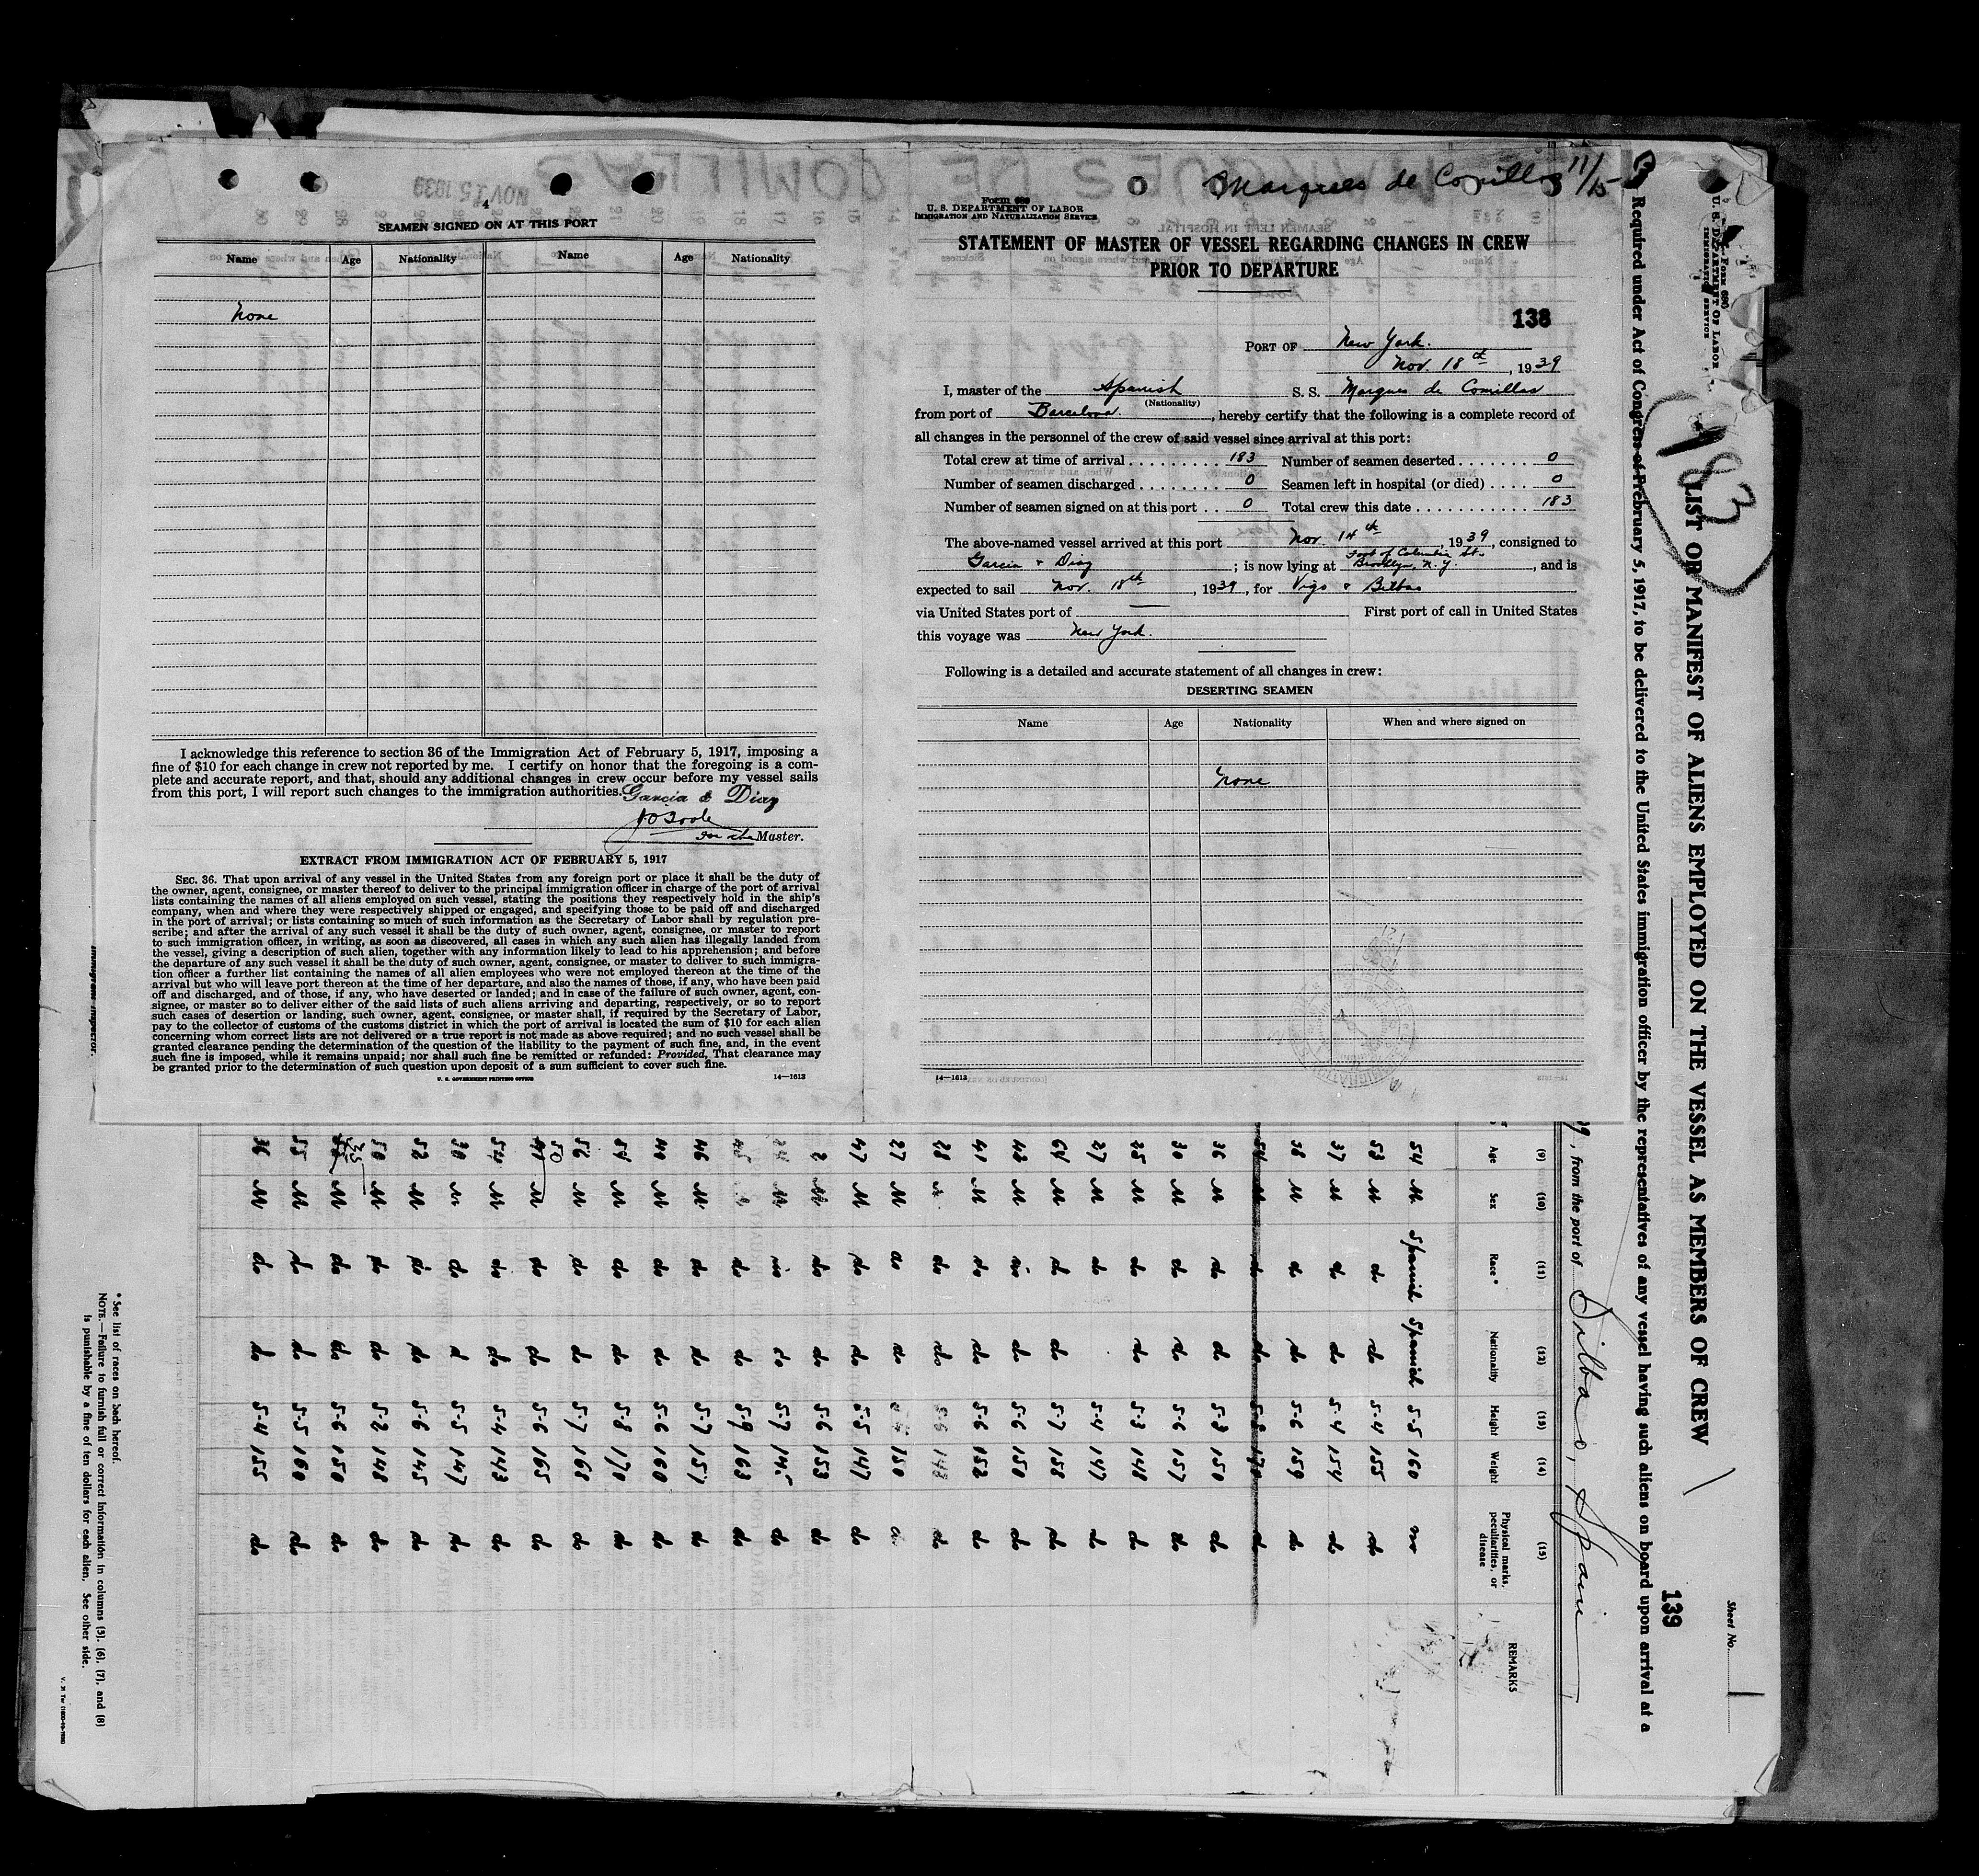 4
SEAMEN SIGNED ON AT THIS PORT
Name Age Nationality Name Age Nationality
None
I acknowledge this reference to section 36 of the Immigration Act of February 5, 1917, imposing a
fine of $10 for each change in crew not reported by me. I certify on honor that the foregoing is a com-
plete and accurate report, and that, should any additional changes in crew occur before my vessel sails
from this port, I will report such changes to the immigration authorities.
Garcia & Diaz
For the Master.
EXTRACT FROM IMMIGRATION ACT OF FEBRUARY 5, 1917
SEC. 36. That upon arrival of any vessel in the United States from any foreign port or place it shall be the duty of
the owner, agent, consignee, or master thereof to deliver to the principal immigration officer in charge of the port of arrival
lists containing the names of all aliens employed on such vessel, stating the positions they respectively hold in the ship's
company, when and where they were respectively shipped or engaged, and specifying those to be paid off and discharged
in the port of arrival; or lists containing so much of such information as the Secretary of Labor shall by regulation pre-
scribe; and after the arrival of any such vessel it shall be the duty of such owner, agent, consignee, or master to report
to such immigration officer, in writing, as soon as discovered, all cases in which any such alien has illegally landed from
the vessel, giving a description of such alien, together with any information likely to lead to his apprehension; and before
the departure of any such vessel it shall be the duty of such owner, agent, consignee, or master to deliver to such immigra-
tion officer a further list containing the names of all alien employees who were not employed thereon at the time of the
arrival but who will leave port thereon at the time of her departure, and also the names of those, if any, who have been paid
off and discharged, and of those, if any, who have deserted or landed; and in case of the failure of such owner, agent, con-
signee, or master so to deliver either of the said lists of such aliens arriving and departing, respectively, or so to report
such cases of desertion or landing, such owner, agent, consignee, or master shall, if required by the Secretary of Labor,
pay to the collector of customs of the customs district in which the port of arrival is located the sum of $10 for each alien
concerning whom correct lists are not delivered or a true report is not made as above required; and no such vessel shall be
granted clearance pending the determination of the question of the liability to the payment of such fine, and, in the event
such fine is imposed, while it remains unpaid; nor shall such fine be remitted or refunded: Provided, That clearance may
be granted prior to the determination of such question upon deposit of a sum sufficient to cover such fine.
U. S. GOVERNMENT PRINTING OFFICE 14—1613
Marques de Comillas 11/15
Form 689
U. S. DEPARTMENT OF LABOR
IMMIGRATION AND NATURALIZATION SERVICE
STATEMENT OF MASTER OF VESSEL REGARDING CHANGES IN CREW
PRIOR TO DEPARTURE
138
PORT OF New York.
Nov. 18th, 1939
I, master of the Spanish S. S. Marques de Comillas
(Nationality)
from port of Barcelona., hereby certify that the following is a complete record of
all changes in the personnel of the crew of said vessel since arrival at this port:
Total crew at time of arrival 183 Number of seamen deserted 0
Number of seamen discharged 0 Seamen left in hospital (or died) 0
Number of seamen signed on at this port 0 Total crew this date 183
The above-named vessel arrived at this port Nov. 14th, 1939, consigned to
Garcia & Diaz; is now lying at Foot of Columbia St. Brooklyn, N.Y., and is
expected to sail Nov. 18th, 1939, for Vigo & Bilbao
via United States port of — First port of call in United States
this voyage was New York.
Following is a detailed and accurate statement of all changes in crew:
DESERTING SEAMEN
Name Age Nationality When and where signed on
None
14—1613
Sheet No.
U. S. DEPARTMENT OF LABOR
IMMIGRATION SERVICE
183
LIST OR MANIFEST OF ALIENS EMPLOYED ON THE VESSEL AS MEMBERS OF CREW
139
Required under Act of Congress of February 5, 1917, to be delivered to the United States immigration officer by the representatives of any vessel having such aliens on board upon arrival at a
, from the port of Bilbao, Spain
(9) (10) (11) (12) (13) (14) (15)
Age Sex Race* Nationality Height Weight Physical marks, peculiarities, or disease REMARKS
54 M Spanish Spanish 5-5 160 no
53 M do do 5-4 155 do
37 M do do 5-4 154 do
38 M do do 5-6 159 do
54 M do do 170 do
36 M do do 5-3 150 do
30 M do do 5-6 157 do
25 M do do 5-3 148 do
27 M do 5-4 147 do
64 M do do 5-7 158 do
43 M do do 5-6 150 do
41 M do do 5-6 152 do
28 do do 148 do
27 M do do 150
47 M do do 5-5 147 do
M do do 5-6 153 do
M do do 5-7 do
do do 5-9 163 do
46 M do do 5-7 157 do
40 M do do 5-6 160 do
54 M do do 5-8 170 do
56 M do do 5-7 168 do
50 M do do 5-6 165 do
50 M do do 5-4 143 do
30 M do 5-5 147 do
52 M do do 5-6 145 do
50 M do do 5-2 148 do
35 M do do 5-6 150 do
55 M do do 5-5 160 do
36 M do do 5-4 155 do
* See list of races on back hereof.
NOTE.—Failure to furnish full or correct information in columns (5), (6), (7), and (8)
is punishable by a fine of ten dollars for each alien. See other side.
Immigrant Inspector.